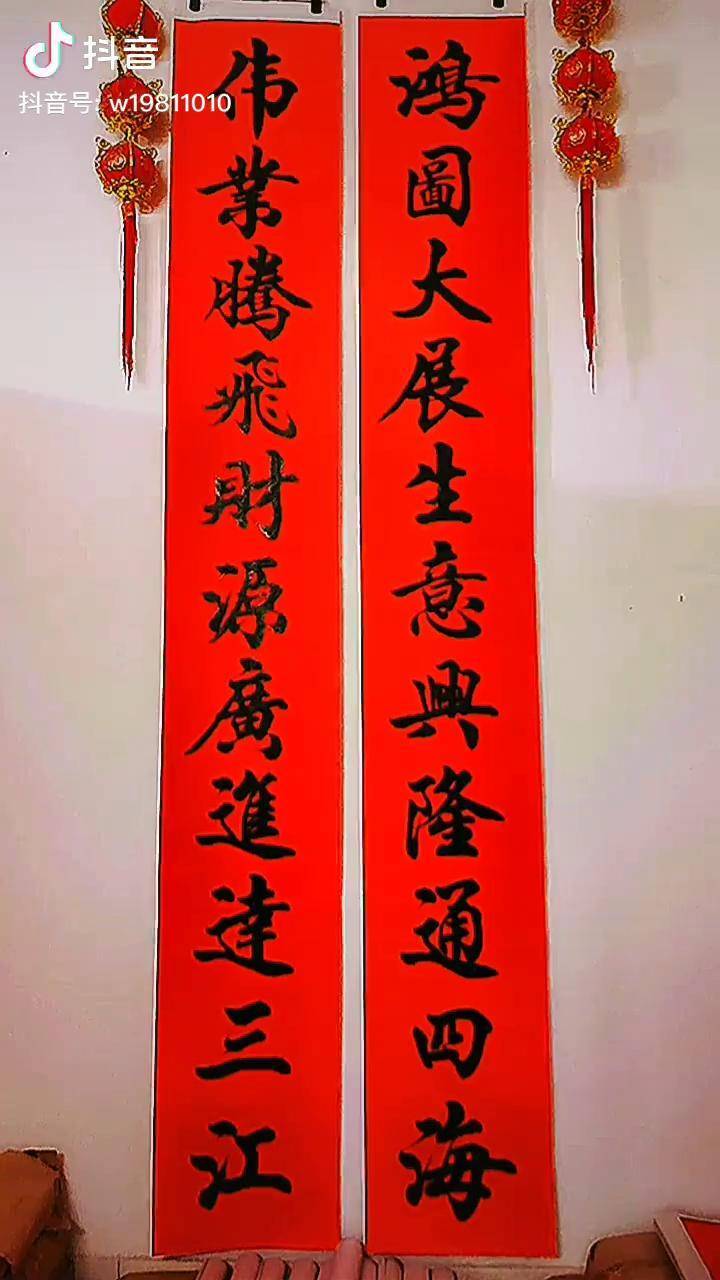 抖音
抖音号: w19811010
鸿圖大展生意興隆通四海
伟業騰飛財源廣進達三江